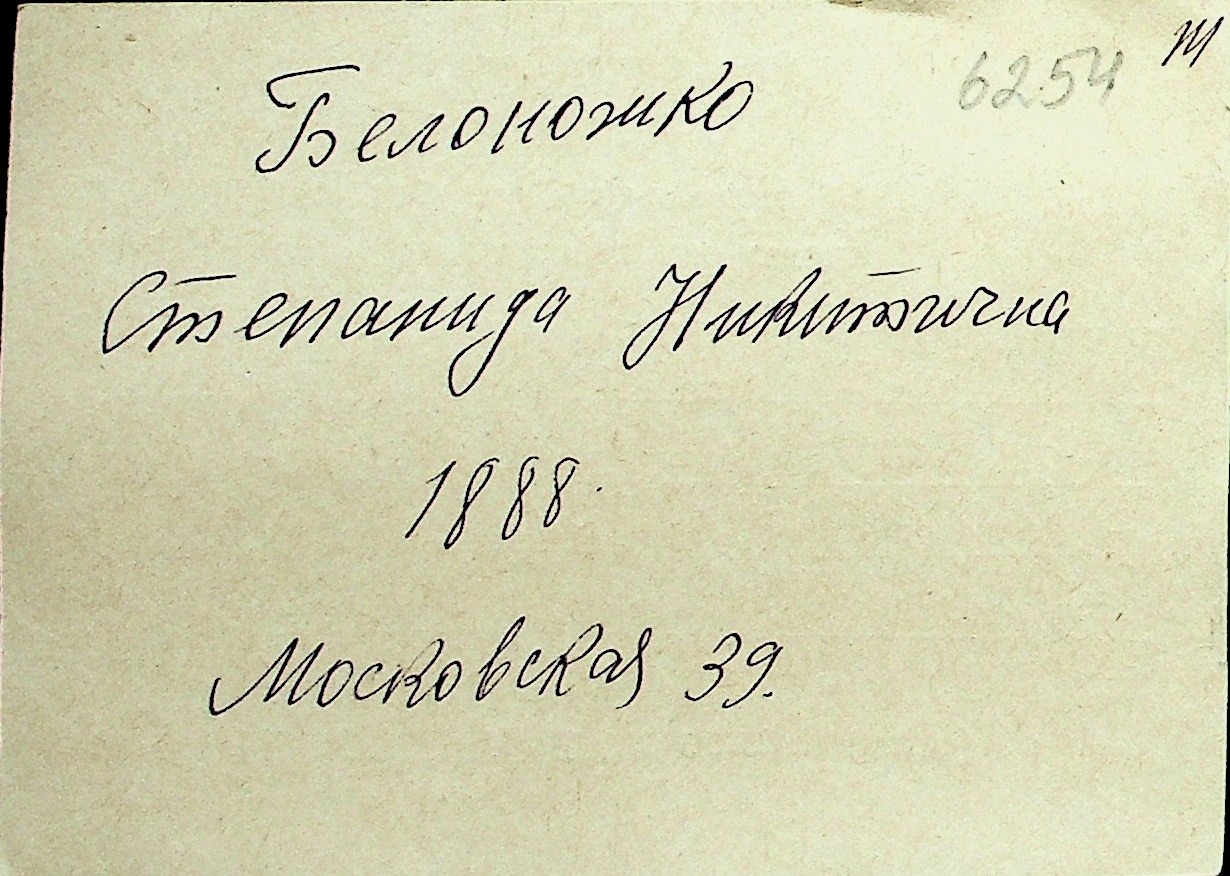 6254
Белоножко
Степанида Никитична
1888.
Московская 39.